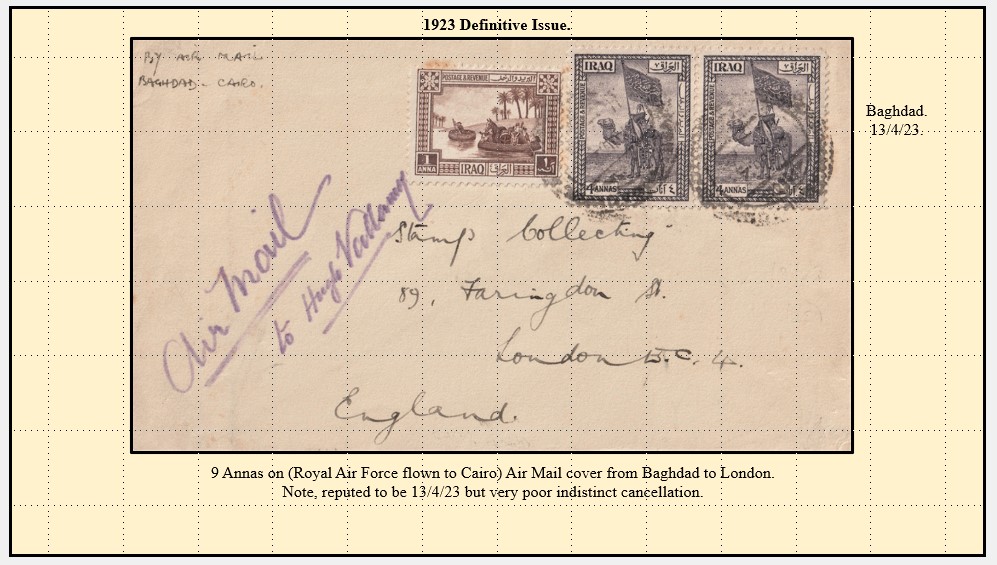 1923 Definitive Issue.
BY AIR MAIL
BAGHDAD - CAIRO.
POSTAGE & REVENUE
1
ANNA
IRAQ
العراق
١
IRAQ
العراق
POSTAGE & REVENUE
4 ANNAS
٤
IRAQ
العراق
POSTAGE & REVENUE
4 ANNAS
٤
Baghdad.
13/4/23.
Air Mail
to Hugh Vallancey
Stamp Collecting
89, Faringdon St.
London E.C. 4.
England.
9 Annas on (Royal Air Force flown to Cairo) Air Mail cover from Baghdad to London.
Note, reputed to be 13/4/23 but very poor indistinct cancellation.